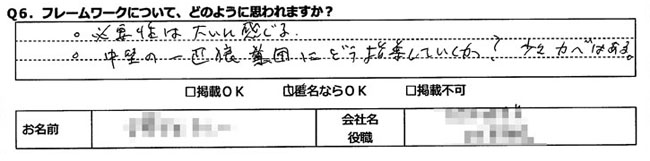 Q6. フレームワークについて、どのように思われますか？
。必要性は大いに感じる。
。中堅の一匹狼集団にどう指導していくか？ 少々カベはある。
□掲載OK ☑匿名ならOK □掲載不可
お名前
会社名
役職